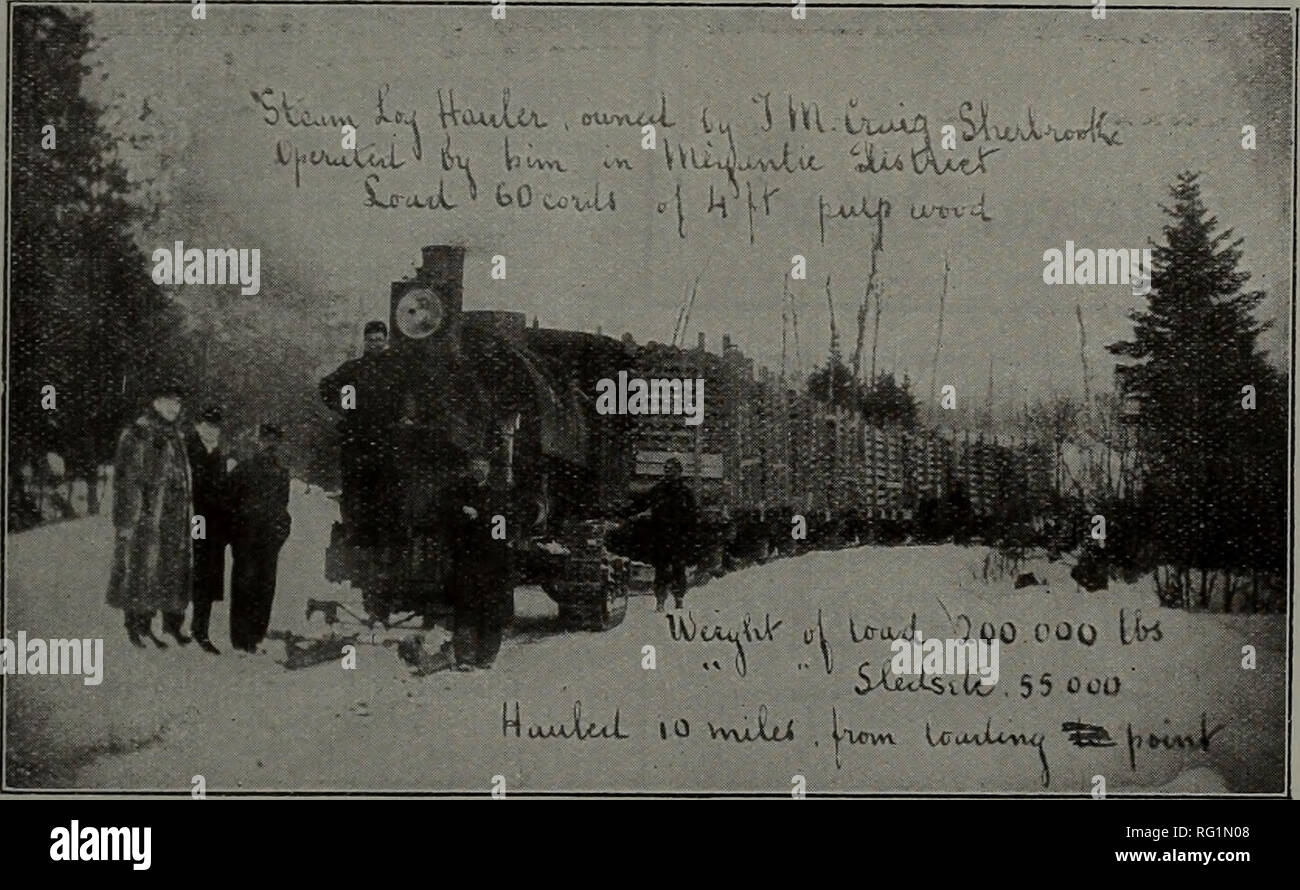 Steam Log Hauler, owned by J M. Craig Sherbrooke
Operated by him in Megantic District
Load 60 cords of 4 ft pulp wood
alamy
alamy
alamy
Weight of load 200.000 lbs
" " Sleds etc. 55 000
Hauled 10 miles, from loading point
alamy
Image ID: RG1N08
www.alamy.com